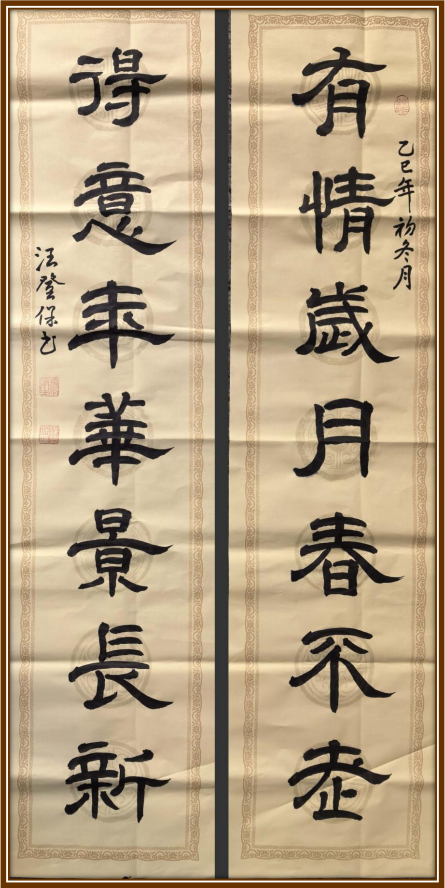 有情歲月春不老
乙巳年初冬月
得意年華景長新
汪登保书